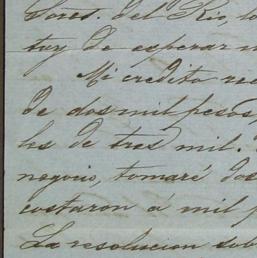 Sores. del Rio, lo
toy de esperar
Mi credito
de dos mil pesos,
les de tres mil.
negocio, tomaré dos
costaron á mil p
La resolucion sob